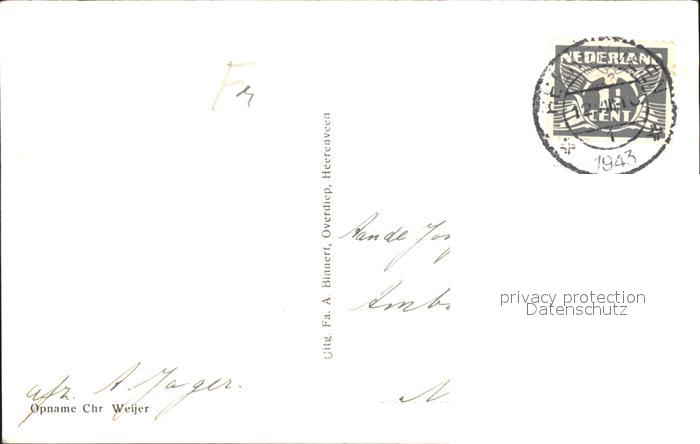 Fr
NEDERLAND
1½
CENT
1943
Uitg. Fa. A Binnert, Overdiep, Heerenveen
Aan de
privacy protection
Datenschutz
afz. A. Jager.
Opname Chr Weijer